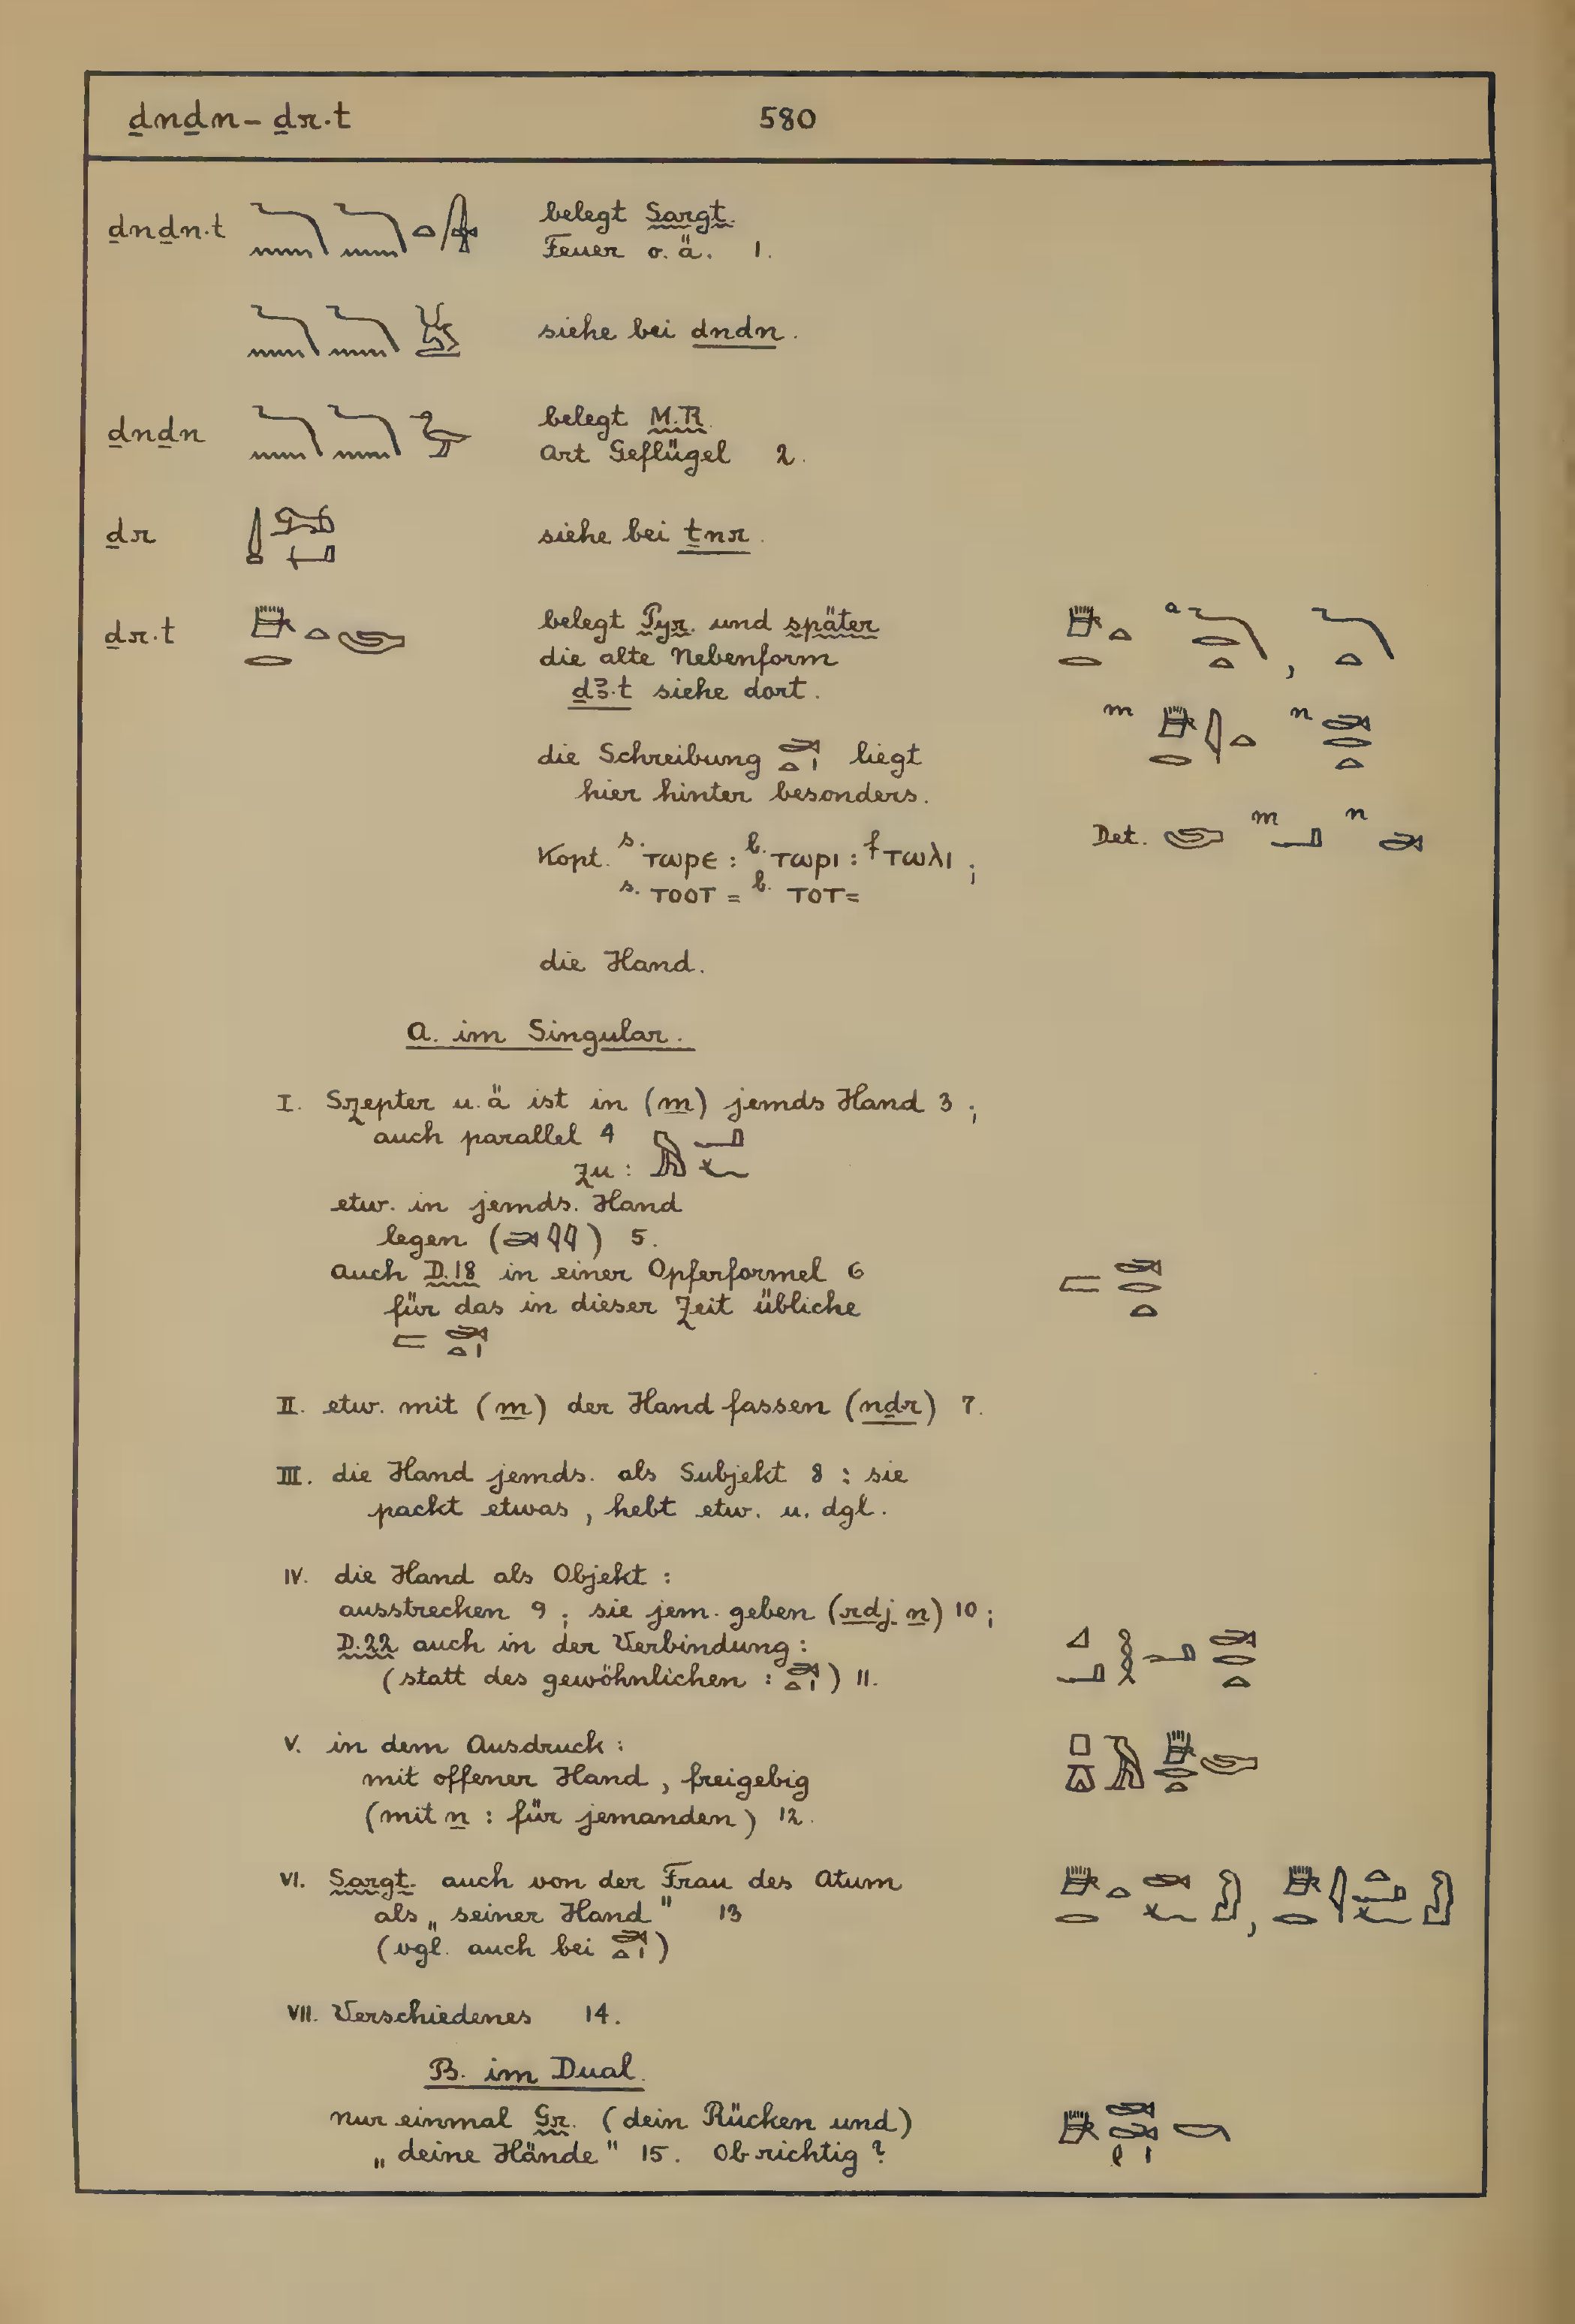 ḏnḏn – ḏr·t 580
ḏnḏn·t belegt Sargt.
Feuer o. ä. 1.
siehe bei dndn.
ḏnḏn belegt M.R.
Art Geflügel 2.
ḏr siehe bei ṯnr.
ḏr·t belegt Pyr. und später
die alte Nebenform
ḏꜣ·t siehe dort.
a ,
m n
die Schreibung liegt
hier hinter besonders.
Det. m n
Kopt. s. ⲧⲱⲣⲉ : b. ⲧⲱⲣⲓ : f ⲧⲱⲗⲓ ;
s. ⲧⲟⲟⲧ = b. ⲧⲟⲧ=
die Hand.
A. im Singular.
I. Szepter u. ä ist in (m) jemds Hand 3 ;
auch parallel 4
zu :
etw. in jemds. Hand
legen ( ) 5.
Auch D.18 in einer Opferformel 6
für das in dieser Zeit übliche
II. etw. mit (m) der Hand fassen (nḏr) 7.
III. die Hand jemds. als Subjekt 8 : sie
packt etwas, hebt etw. u. dgl.
IV. die Hand als Objekt :
ausstrecken 9 ; sie jem. geben (rdj n) 10 ;
D.22 auch in der Verbindung :
(statt des gewöhnlichen : ) 11.
V. in dem Ausdruck :
mit offener Hand, freigebig
(mit n : für jemanden) 12.
VI. Sargt. auch von der Frau des Atum
als „seiner Hand" 13
(vgl. auch bei )
VII. Verschiedenes 14.
B. im Dual.
nur einmal Gr. (dein Rücken und)
„deine Hände" 15. Ob richtig ?